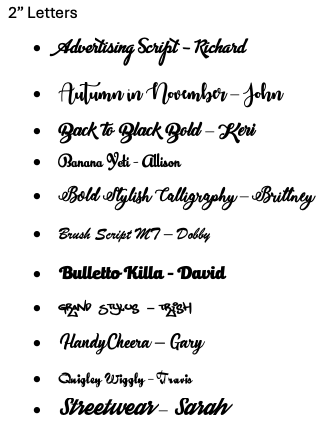 2” Letters
• Advertising Script – Richard
• Autumn in November – John
• Back to Black Bold – Keri
• Banana Yeti - Allison
• Bold Stylish Calligraphy – Brittney
• Brush Script MT – Dobby
• Bulletto Killa - David
• GRAND STYLUS – TRISH
• HandyCheera – Gary
• Quigley Wiggly – Travis
• Streetwear – Sarah